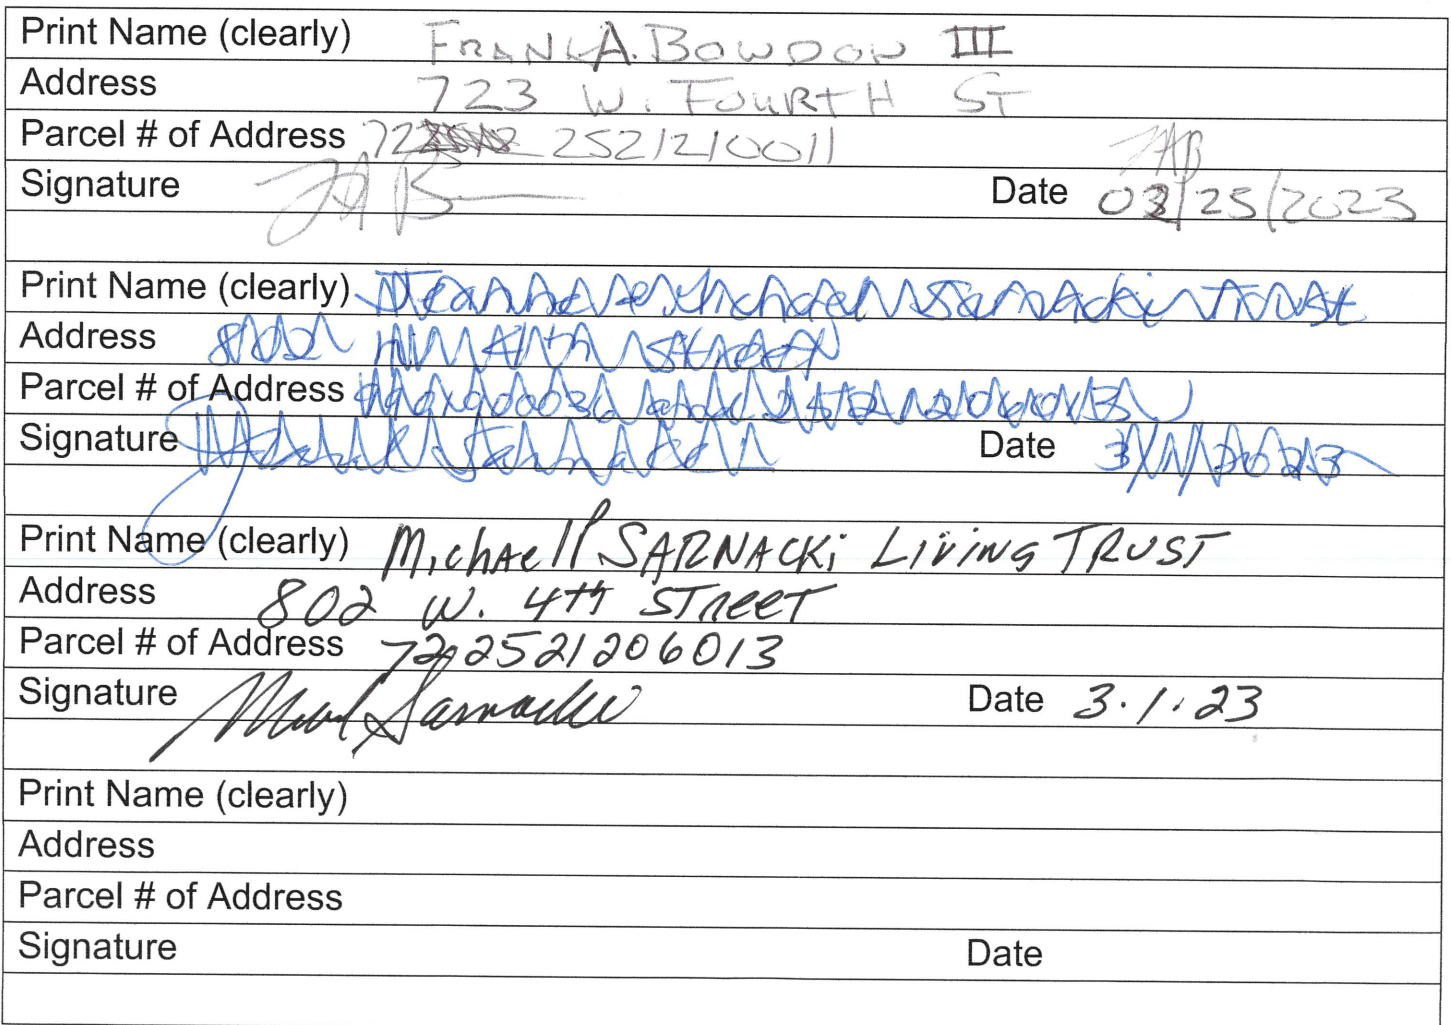 Print Name (clearly) FRANK A. BOWDON III
Address 723 W. FOURTH ST
Parcel # of Address 72 2521210011
FAB
Signature Date 03/25/2023
Print Name (clearly) Sarnacki Trust
Address 802 W 4th Street
Parcel # of Address
Signature Date
Print Name (clearly) Michael P SARNACKi LiViNG TRUST
Address 802 W. 4th STReeT
Parcel # of Address 722521206013
Signature Date 3.1.23
Print Name (clearly)
Address
Parcel # of Address
Signature Date